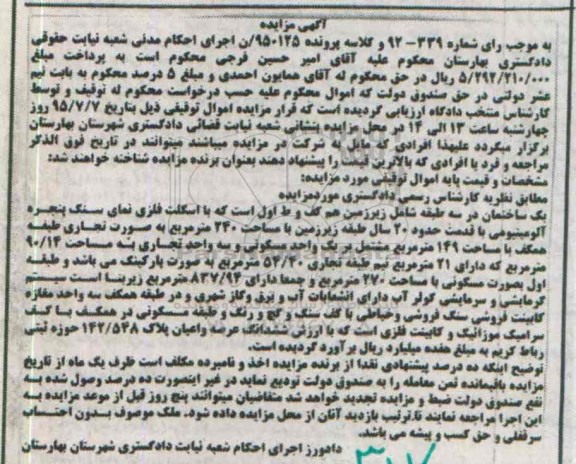 آگهی مزایده
به موجب رای شماره ۳۳۹- ۹۲ و کلاسه پرونده ۹۵۰۱۲۵/ن اجرای احکام مدنی شعبه نیابت حقوقی
دادگستری بهارستان محکوم علیه آقای امیر حسین فرجی محکوم است به پرداخت مبلغ
۵/۲۹۲/۲۱۰/۰۰۰ ریال در حق محکوم له آقای همایون احمدی و مبلغ ۵ درصد محکوم به بابت نیم
عشر دولتی در حق صندوق دولت که اموال محکوم علیه حسب درخواست محکوم له توقیف و توسط
کارشناس منتخب دادگاه ارزیابی گردیده است که قرار مزایده اموال توقیفی ذیل بتاریخ ۹۵/۷/۷ روز
چهارشنبه ساعت ۱۳ الی ۱۴ در محل مزایده بنشانی شعبه نیابت قضائی دادگستری شهرستان بهارستان
برگزار میگردد علیهذا افرادی که مایل به شرکت در مزایده میباشند میتوانند در تاریخ فوق الذکر
مراجعه و فرد یا افرادی که بالاترین قیمت را پیشنهاد دهند بعنوان برنده مزایده شناخته خواهند شد:
مشخصات و قیمت پایه اموال توقیفی مورد مزایده:
مطابق نظریه کارشناس رسمی دادگستری موردمزایده
یک ساختمان در سه طبقه شامل زیرزمین هم کف و ط اول است که با اسکلت فلزی نمای سنگ پنجره
آلومینیومی با قدمت حدود ۲۰ سال طبقه زیرزمین با مساحت ۲۴۰ مترمربع به صورت تجاری طبقه
همکف با مساحت ۱۴۹ مترمربع مشتمل بر یک واحد مسکونی و سه واحد تجاری به مساحت ۹۰/۱۴
مترمربع که دارای ۲۱ مترمربع نیم طبقه تجاری ۵۴/۴۰ مترمربع به صورت پارکینگ می باشد و طبقه
اول بصورت مسکونی با مساحت ۲۷۰ مترمربع و جمعا دارای ۸۳۷/۹۴ مترمربع زیربنا است سیستم
گرمایشی و سرمایشی کولر آب دارای انشعابات آب و برق وگاز شهری و در طبقه همکف سه واحد مغازه
کابینت فروشی سنگ فروشی وخیاطی با کف سنگ و گچ و رنگ و طبقه مسکونی در همکف با کف
سرامیک موزائیک و کابینت فلزی است که با ارزش ششدانگ عرصه واعیان پلاک ۱۴۲/۵۴۸ حوزه ثبتی
رباط کریم به مبلغ هفده میلیارد ریال برآورد گردیده است.
توضیح اینکه ده درصد پیشنهادی نقدا از برنده مزایده اخذ و نامبرده مکلف است ظرف یک ماه از تاریخ
مزایده باقیمانده ثمن معامله را به صندوق دولت تودیع نماید در غیر اینصورت ده درصد وصول شده به
نفع صندوق دولت ضبط و مزایده تجدید خواهد شد متقاضیان میتوانند پنج روز قبل از موعد مزایده به
این اجرا مراجعه نمایند تا ترتیب بازدید آنان از محل مزایده داده شود. ملک موصوف بدون احتساب
سرقفلی و حق کسب و پیشه می باشد.
دادورز اجرای احکام شعبه نیابت دادگستری شهرستان بهارستان